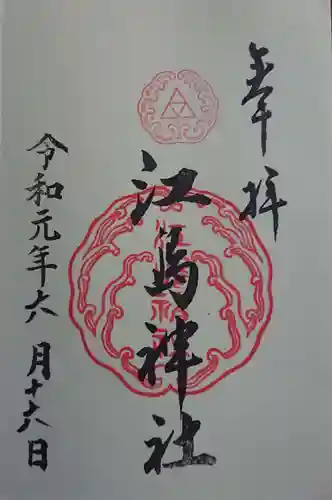 奉拝
江島神社
令和元年六月十六日